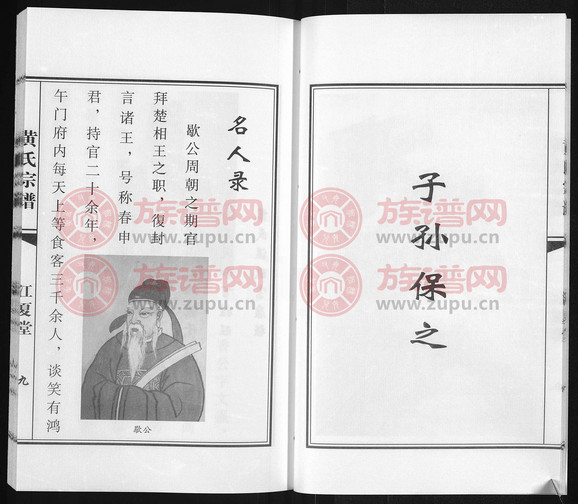 子孙保之
名人录
歇公周朝之期官
拜楚相王之职，復封
言诸王，号称春申
君，持官二十余年，
午门府内每天上等食客三千余人，谈笑有鸿
歇公
黄氏宗谱
江夏堂
九
族谱网
www.zupu.cn
族谱网
www.zupu.cn
族谱网
www.zupu.cn
族谱网
www.zupu.cn